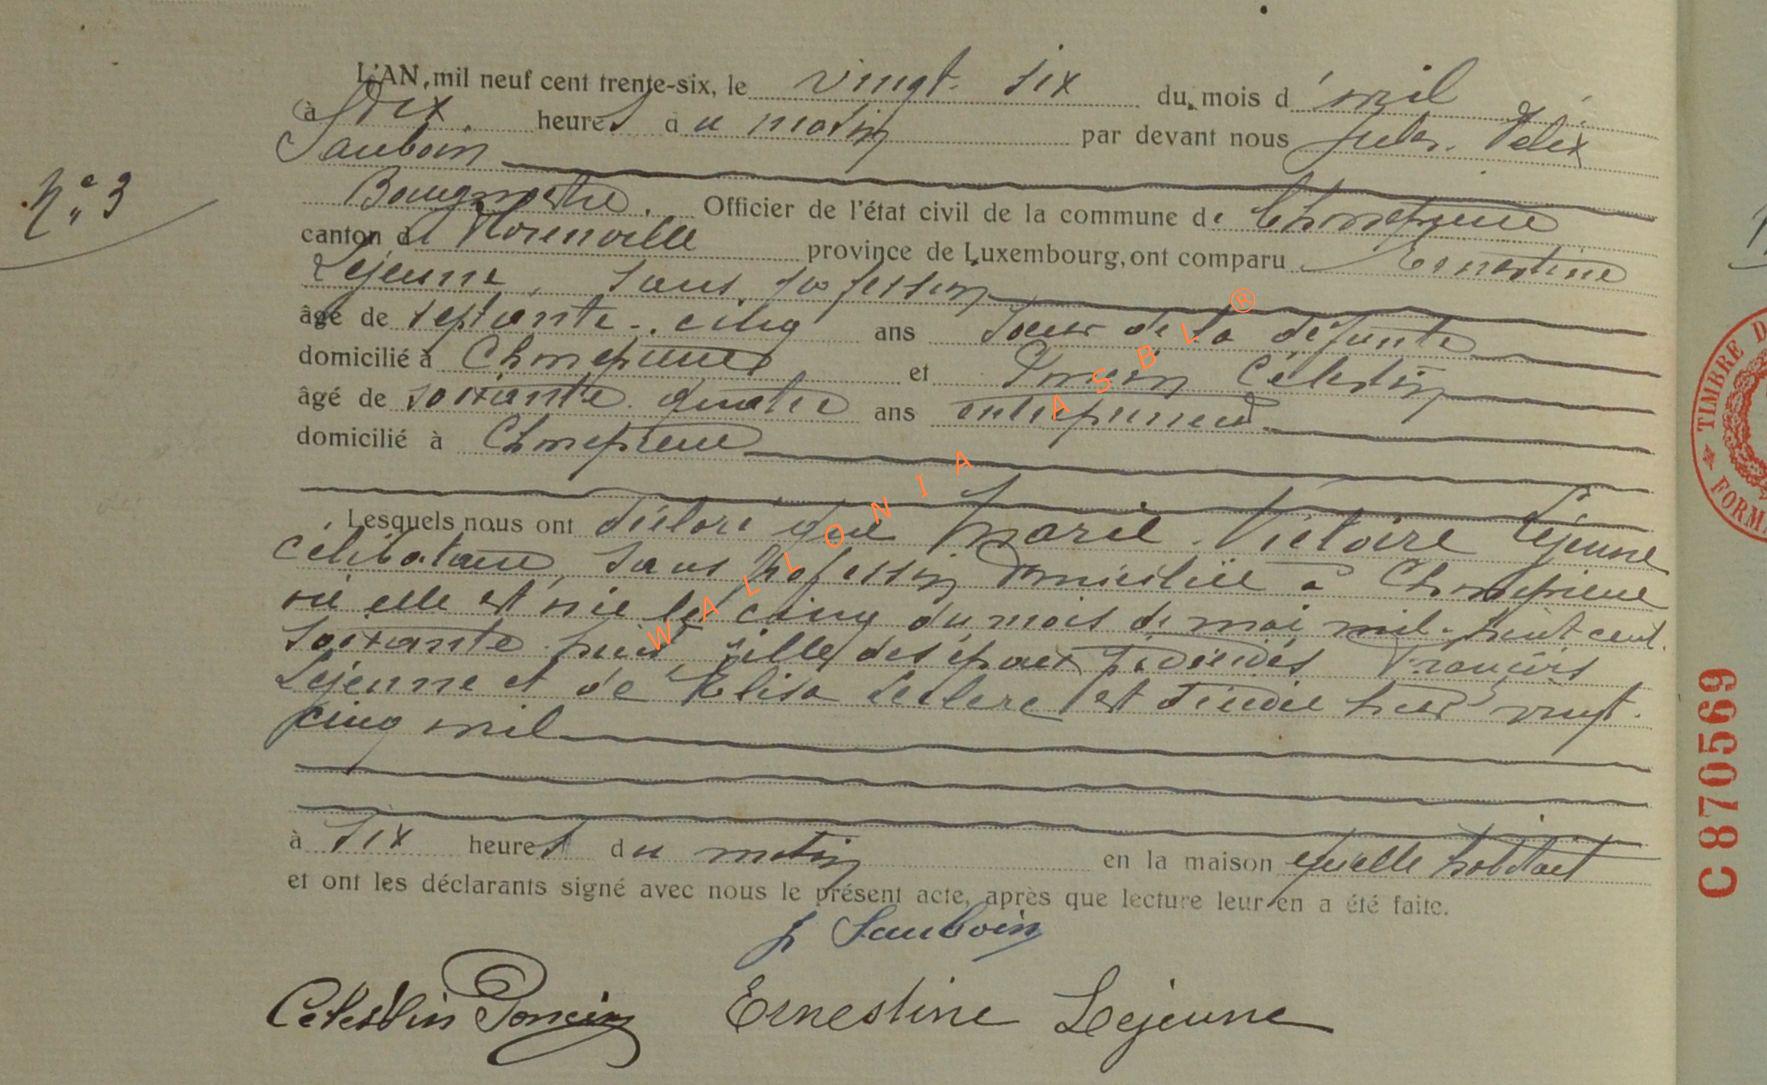 L'AN, mil neuf cent trente-six, le vingt-six du mois d'avril
à dix heures du matin par devant nous Jules Félix
Sauboin
N° 3
Bourgmestre, Officier de l'état civil de la commune de Chassepierre
canton de Florenville province de Luxembourg, ont comparu Ernestine
Lejeune, sans profession
âgé de septante-cinq ans soeur de la défunte
domicilié à Chassepierre et Poncin Célestin
âgé de soixante quatre ans entrepreneur
domicilié à Chassepierre
Lesquels nous ont déclaré que Marie Victoire Lejeune
célibataire, sans profession domiciliée à Chassepierre
où elle est née le cinq du mois de mai mil-huit cent
soixante huit, fille des époux décédés François
Lejeune et de Elisa Leclerc est décédée hier vingt-
cinq avril
à six heures du matin en la maison qu'elle habitait
et ont les déclarants signé avec nous le présent acte, après que lecture leur en a été faite.
J Sauboin
Célestin Poncin Ernestine Lejeune
WALLONIA ASBL ®
TIMBRE D
FORM
C870569